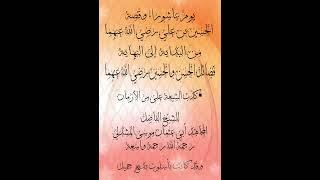 يوم عاشوراء وقصة
الحسين بن علي رضي الله عنهما
من البداية إلى النهاية
فضائل الحسن والحسين رضي الله عنهما
كذبت الشيعة على مر الأزمان
للشيخ الفاضل
المجاهد أبي عثمان موسى
رحمه الله رحمة واسعة
وقد كانت بأسلوب